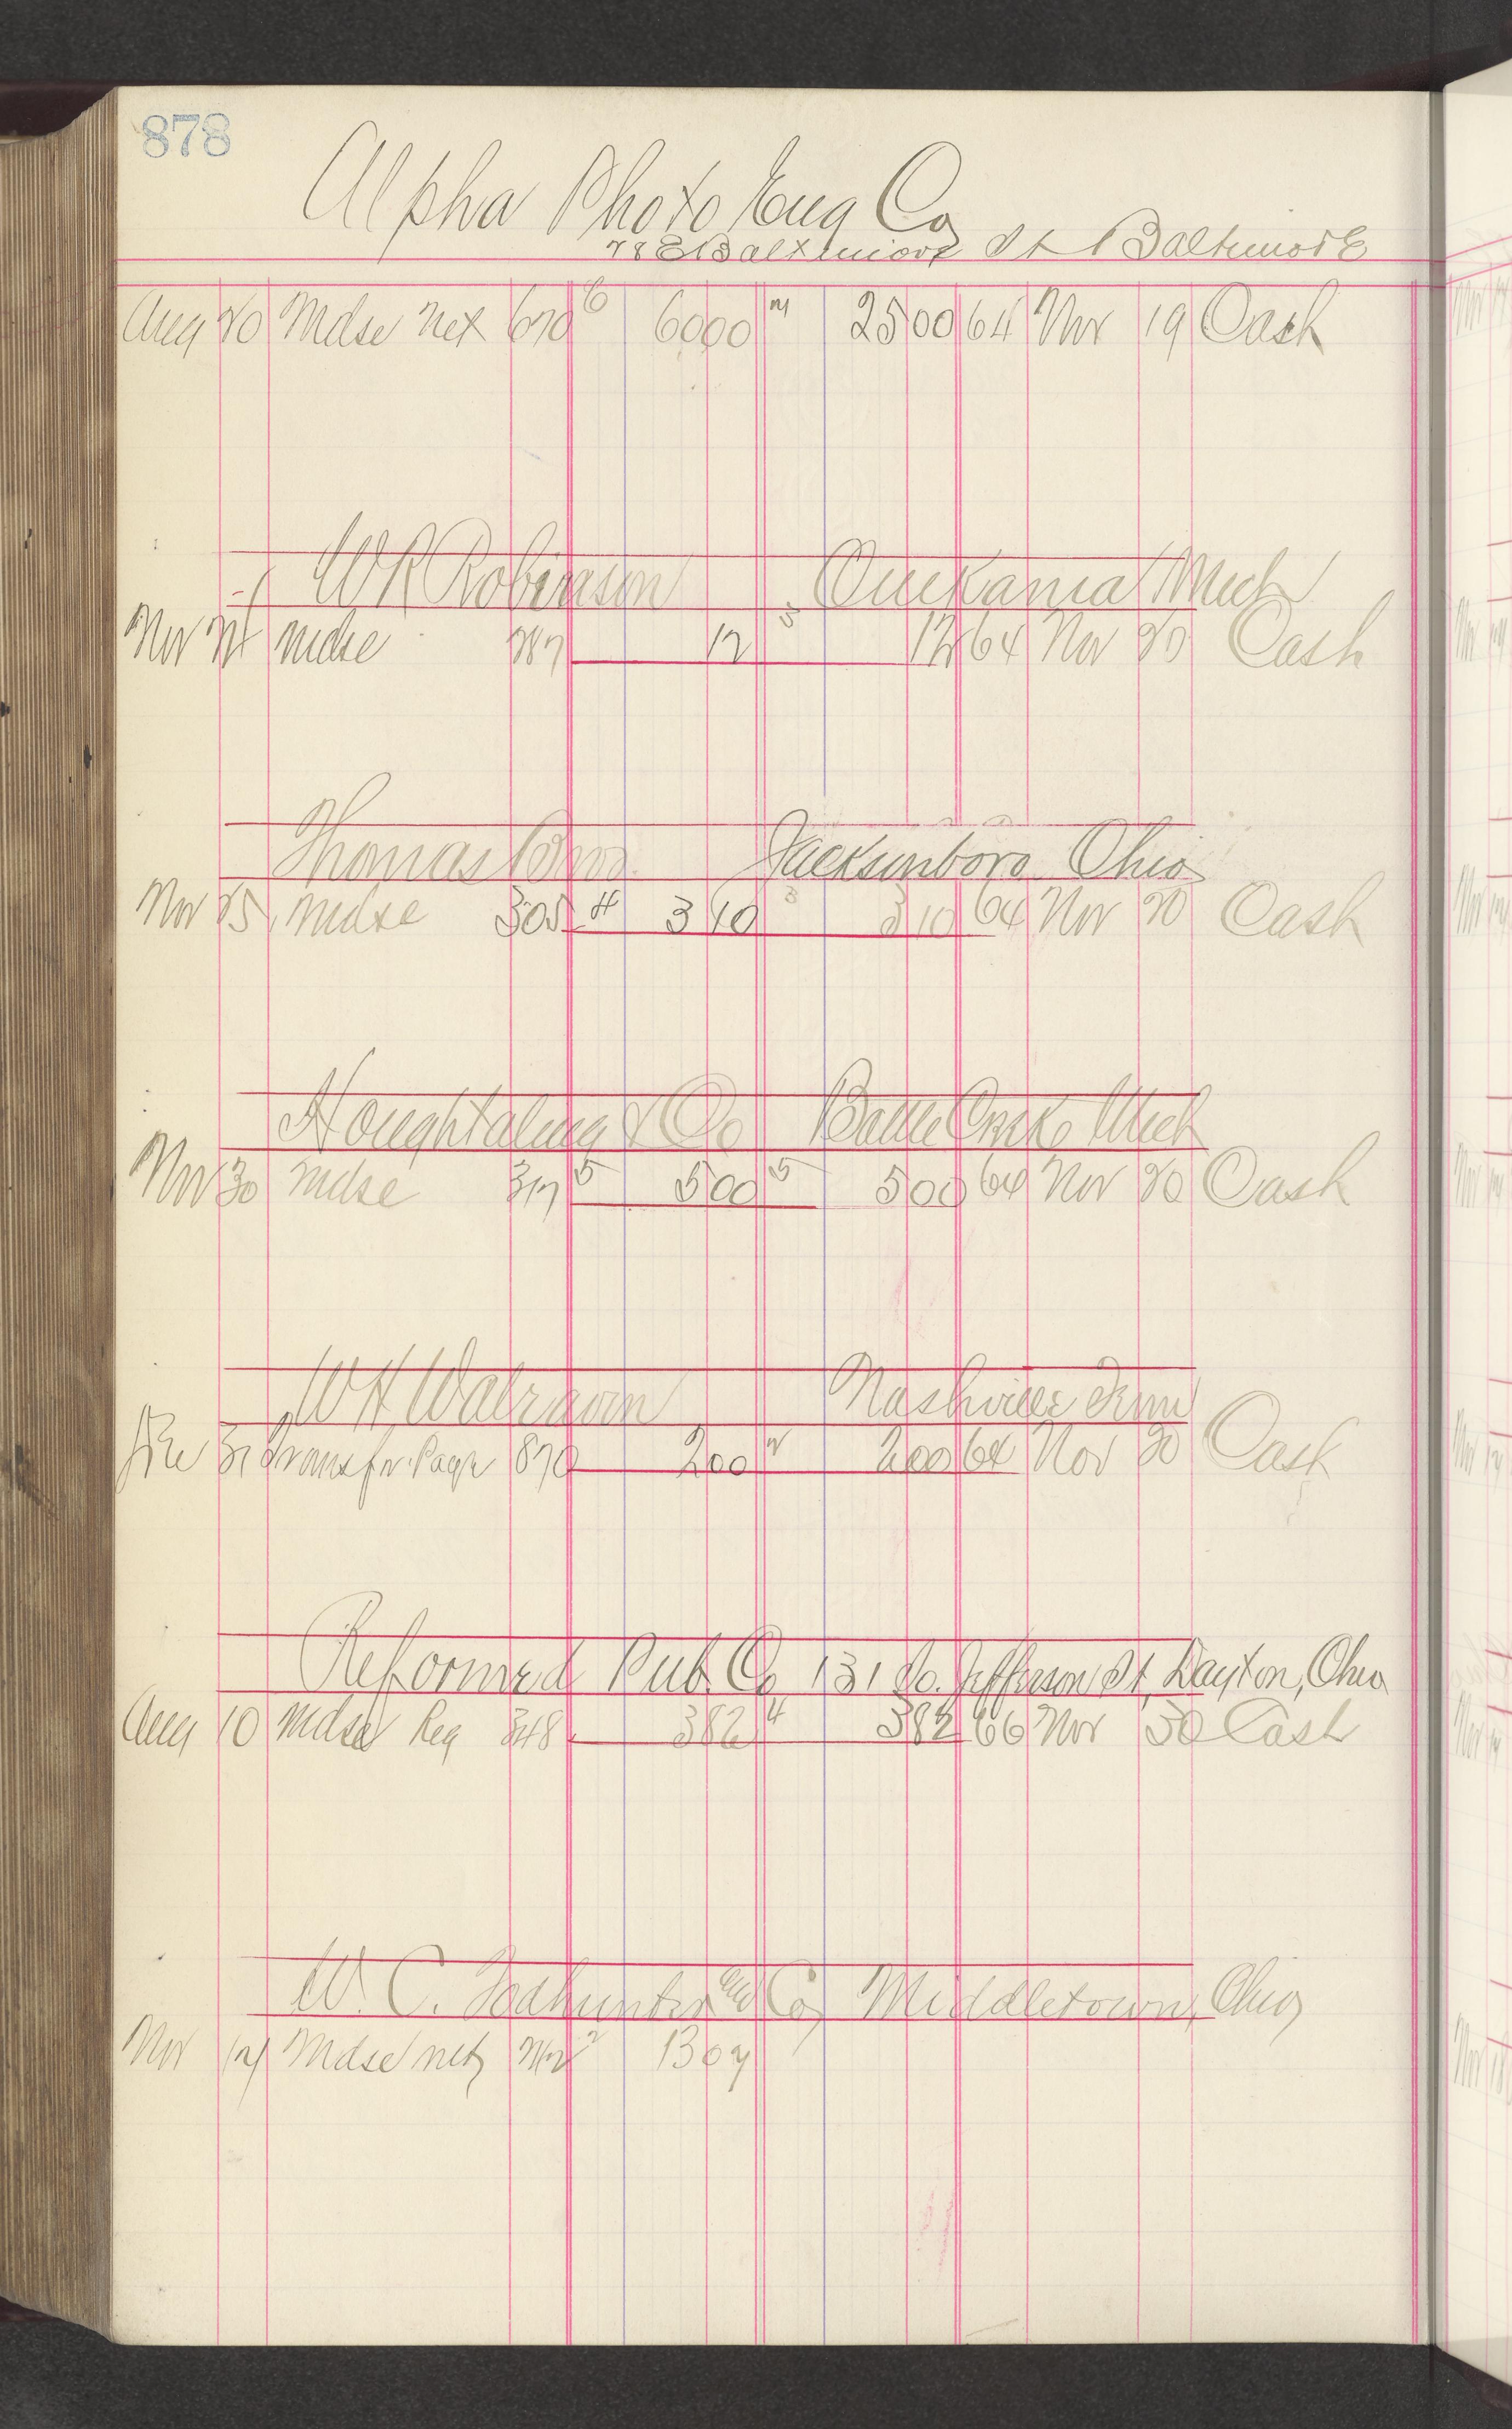 878
Alpha Photo Eng Co
28 E Baltimore St Baltimore
Aug 20 Mdse net 670 6 6000 2500 64 Nov 19 Cash
W R Robinson Onekama Mich
Nov mdse 287 12 3 12 64 Nov 20 Cash
Thomas Bros. Jacksonboro Ohio
Nov 25 mdse 305 4 310 3 310 64 Nov 20 Cash
Houghtaling & Co Battle Creek Mich
Nov 30 mdse 317 5 500 5 500 64 Nov 20 Cash
W H Walraven Nashville Tenn
31 Transfer Page 870 200 2 200 64 Nov 20 Cash
Reformed Pub. Co 131 So. Jefferson St, Dayton, Ohio
Aug 10 Mdse Reg 348 382 4 382 66 Nov 30 Cash
W. C. Todhunter and Co, Middletown, Ohio
Nov Mdse net 2 1307